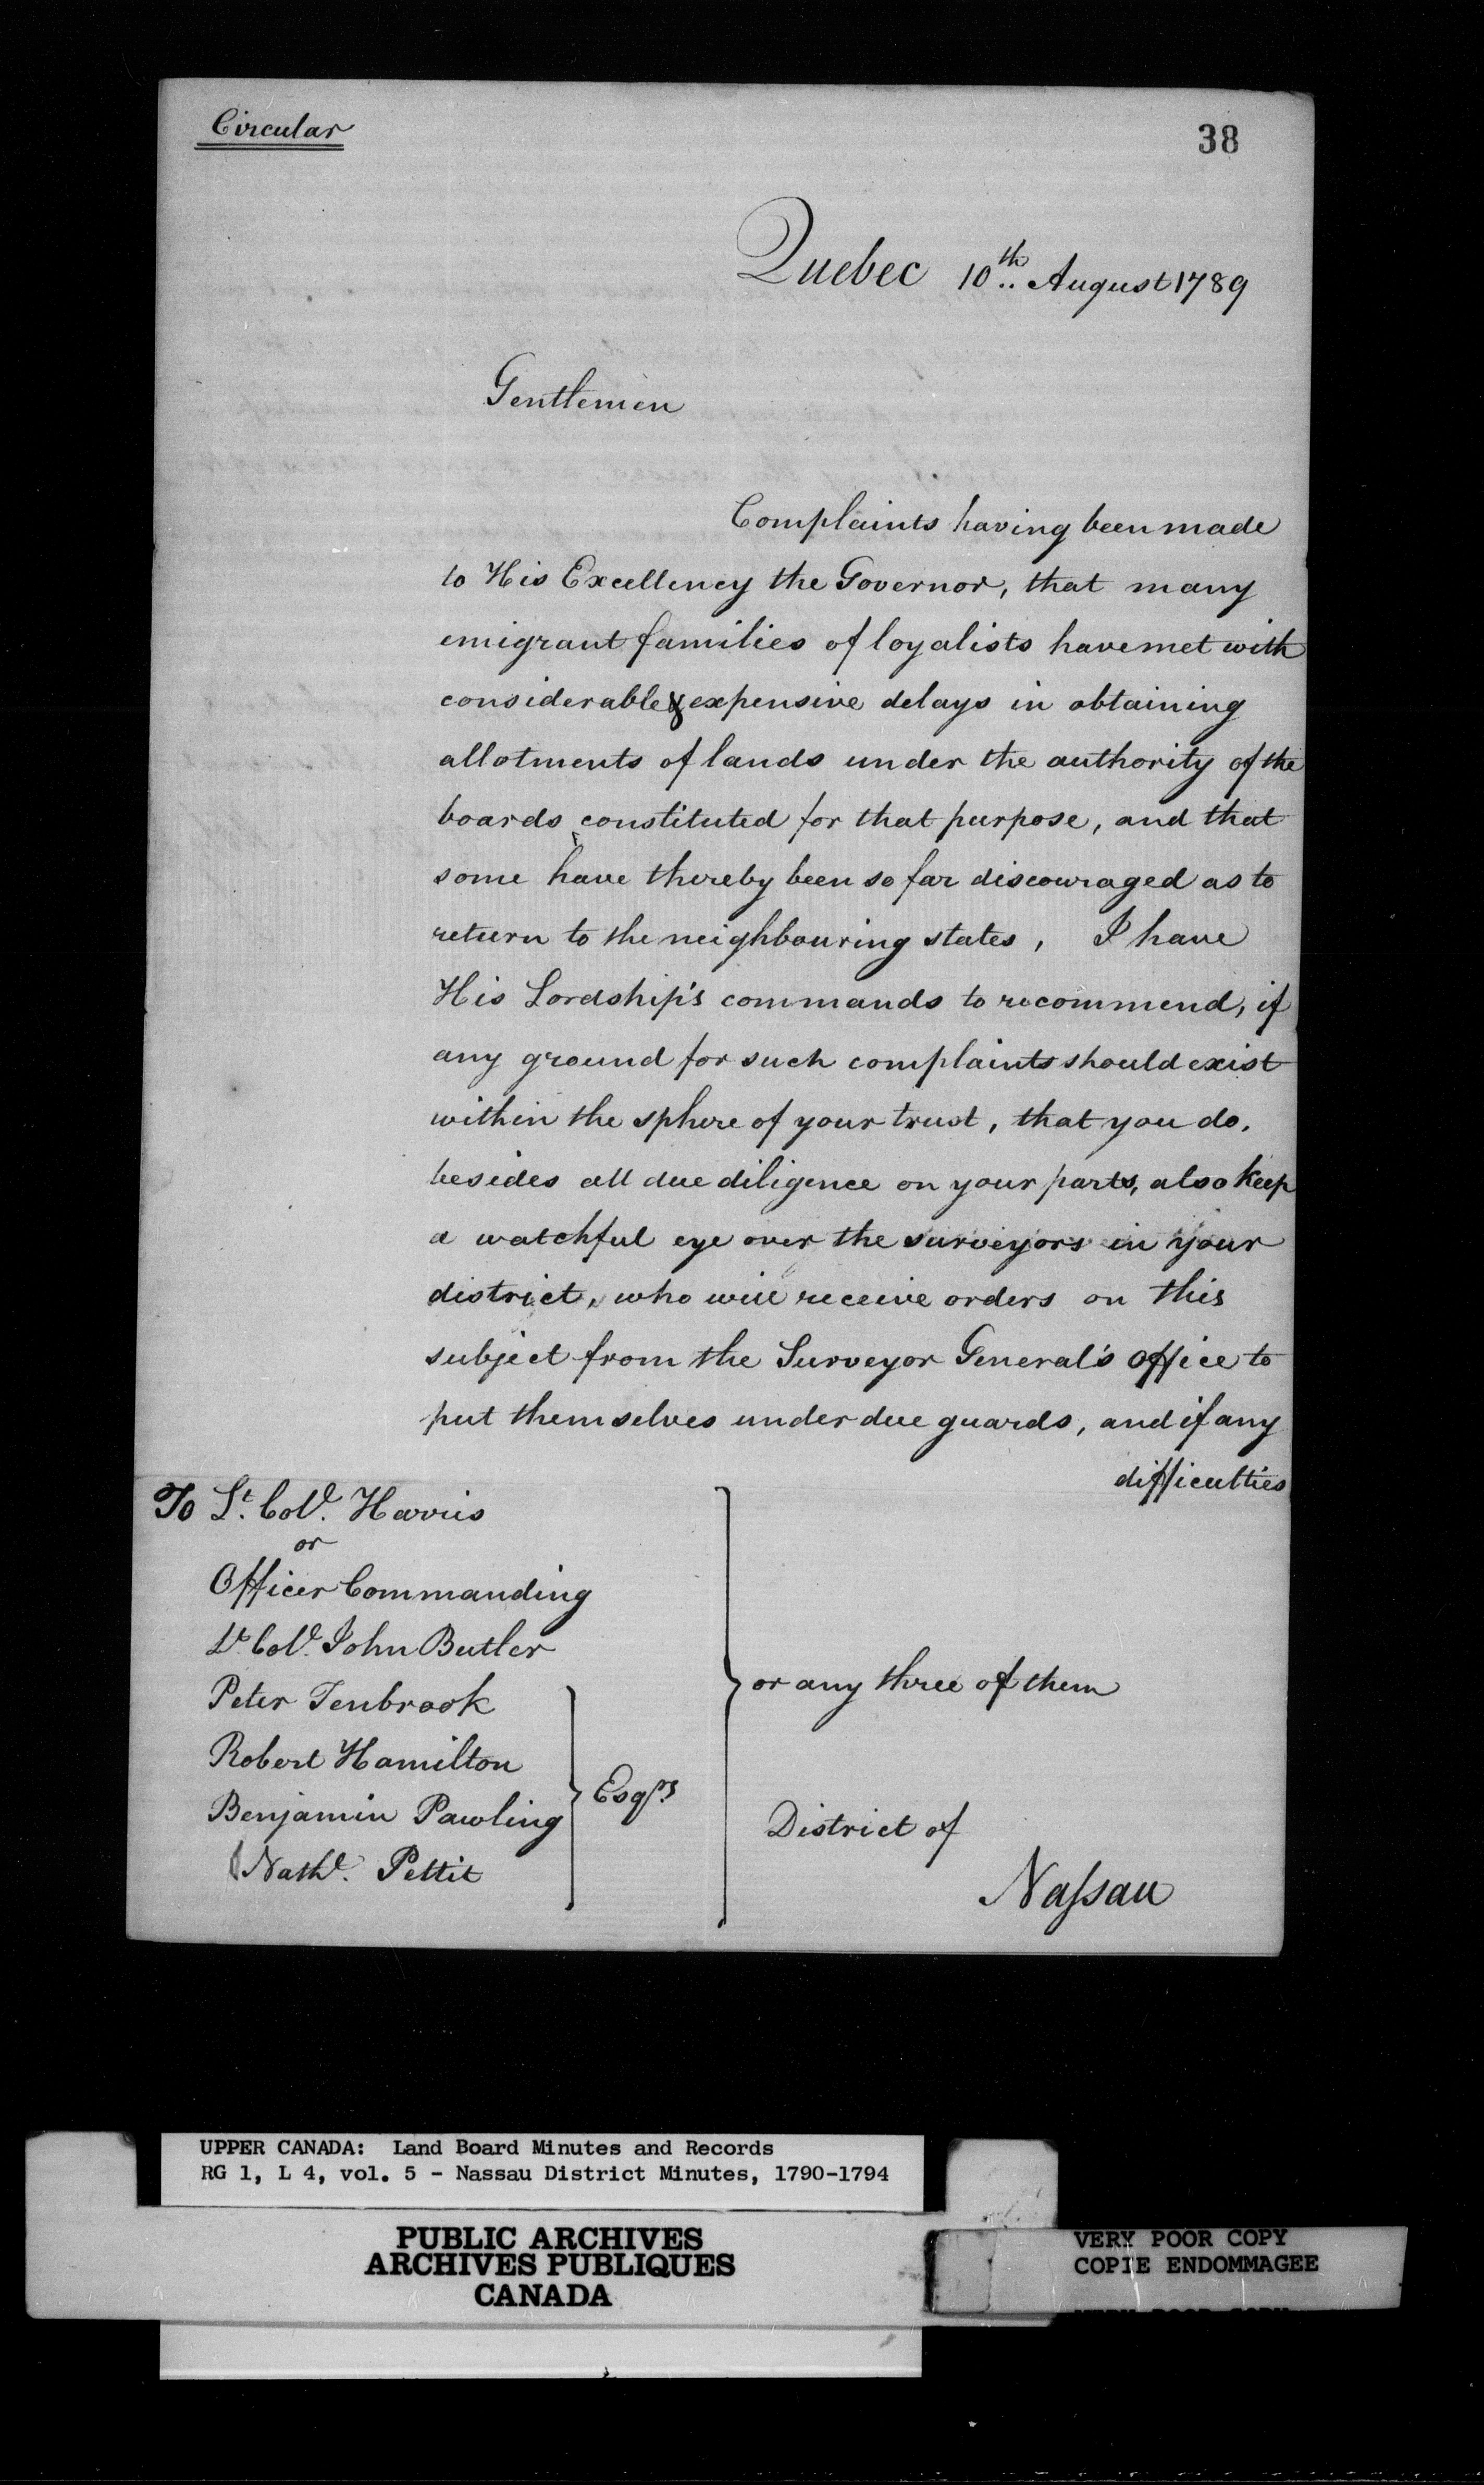 Circular
38
Quebec 10th.. August 1789
Gentlemen
Complaints having been made
to His Excellency the Governor, that many
emigrant families of loyalists have met with
considerable & expensive delays in obtaining
allotments of lands under the authority of the
boards constituted for that purpose, and that
some have thereby been so far discouraged as to
return to the neighbouring states, I have
His Lordship's commands to recommend, if
any ground for such complaints should exist
within the sphere of your trust, that you do,
besides all due diligence on your parts, also keep
a watchful eye over the surveyors in your
district, who will receive orders on this
subject from the Surveyor General's office to
put themselves under due guards, and if any
difficulties
To Lt. Col. Harris
or
Officer Commanding
Lt. Col. John Butler
Peter Tenbrook
Robert Hamilton
Benjamin Pawling
Nathl. Pettit
Esqrs
or any three of them
District of
Nassau
UPPER CANADA: Land Board Minutes and Records
RG 1, L 4, vol. 5 - Nassau District Minutes, 1790-1794
PUBLIC ARCHIVES
ARCHIVES PUBLIQUES
CANADA
VERY POOR COPY
COPIE ENDOMMAGEE